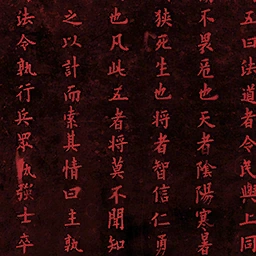 五曰法道者令民與上同
不畏危也天者陰陽寒暑
狹死生也將者智信仁勇
也凡此五者將莫不聞知
之以計而索其情曰主孰
法令孰行兵眾孰強士卒